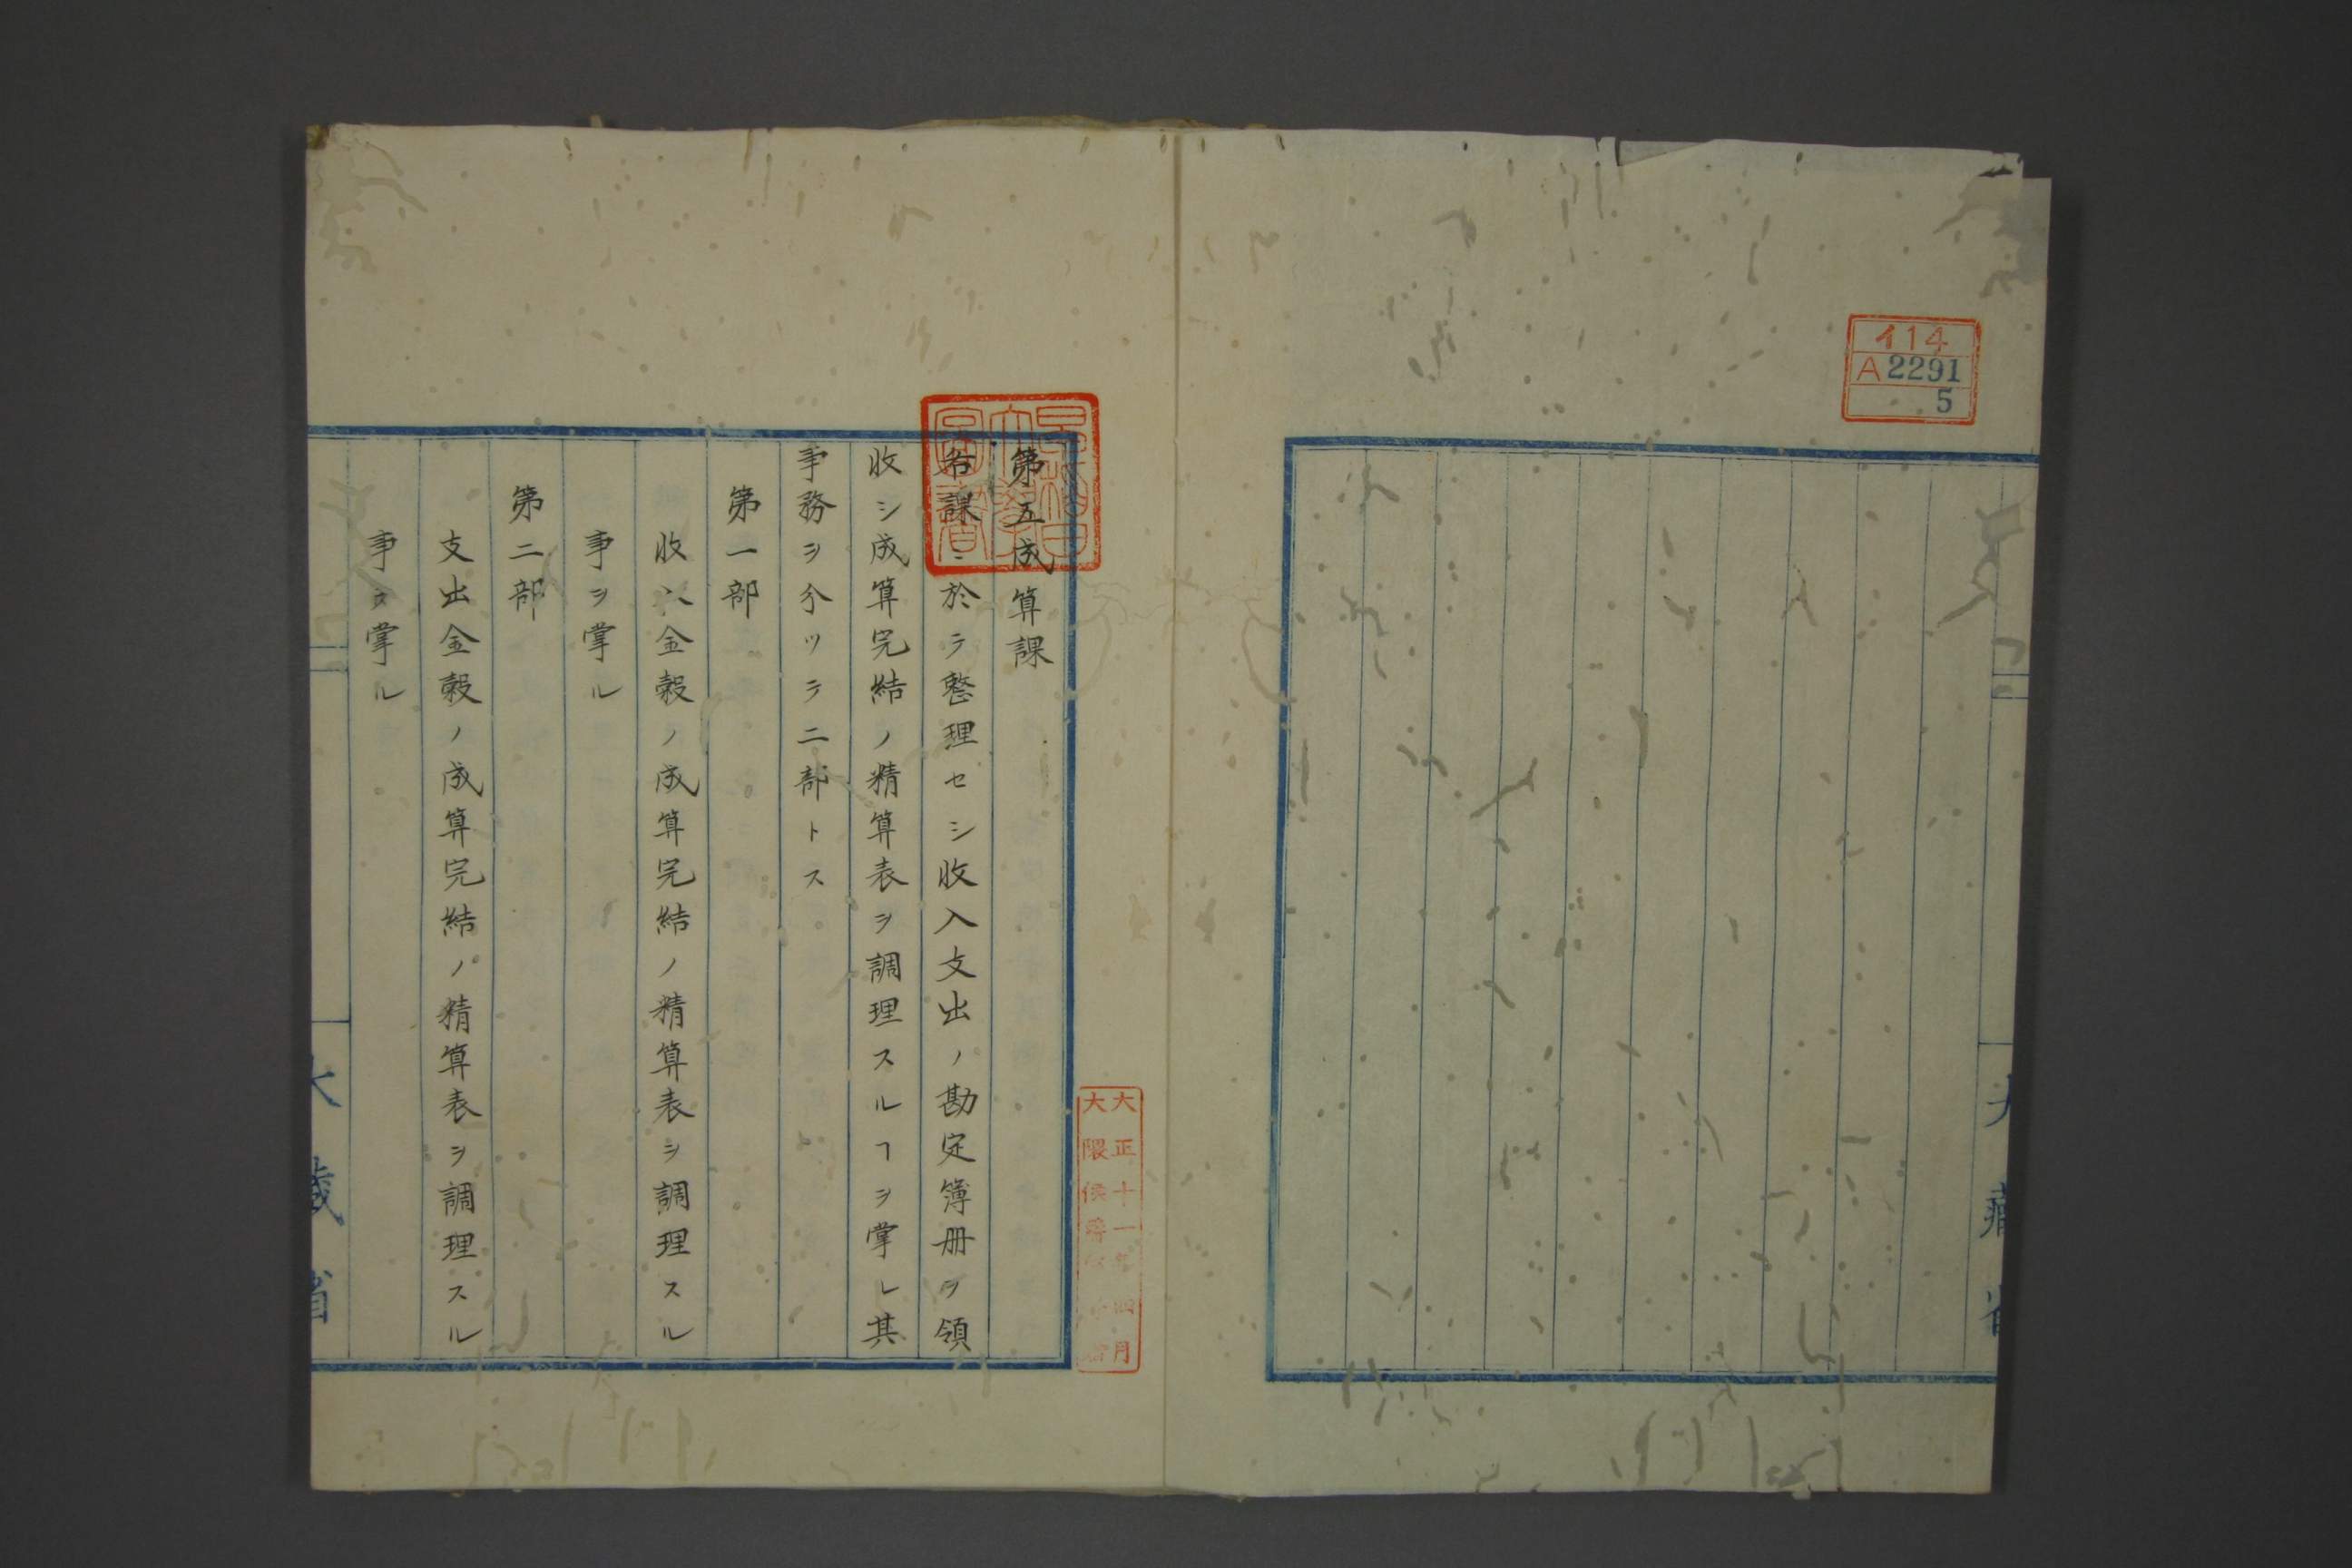 イ14
A2291
5
大藏省
早稲田
大學
圖書
第五成算課
各課ニ於テ整理セシ收入支出ノ勘定簿册ヲ領
收シ成算完結ノ精算表ヲ調理スルヿヲ掌レ其
事務ヲ分ツテ二部トス
第一部
收入金穀ノ成算完結ノ精算表ヲ調理スル
事ヲ掌ル
第二部
支出金穀ノ成算完結ノ精算表ヲ調理スル
事ヲ掌ル
大正十一年四月
大隈侯爵
大藏省